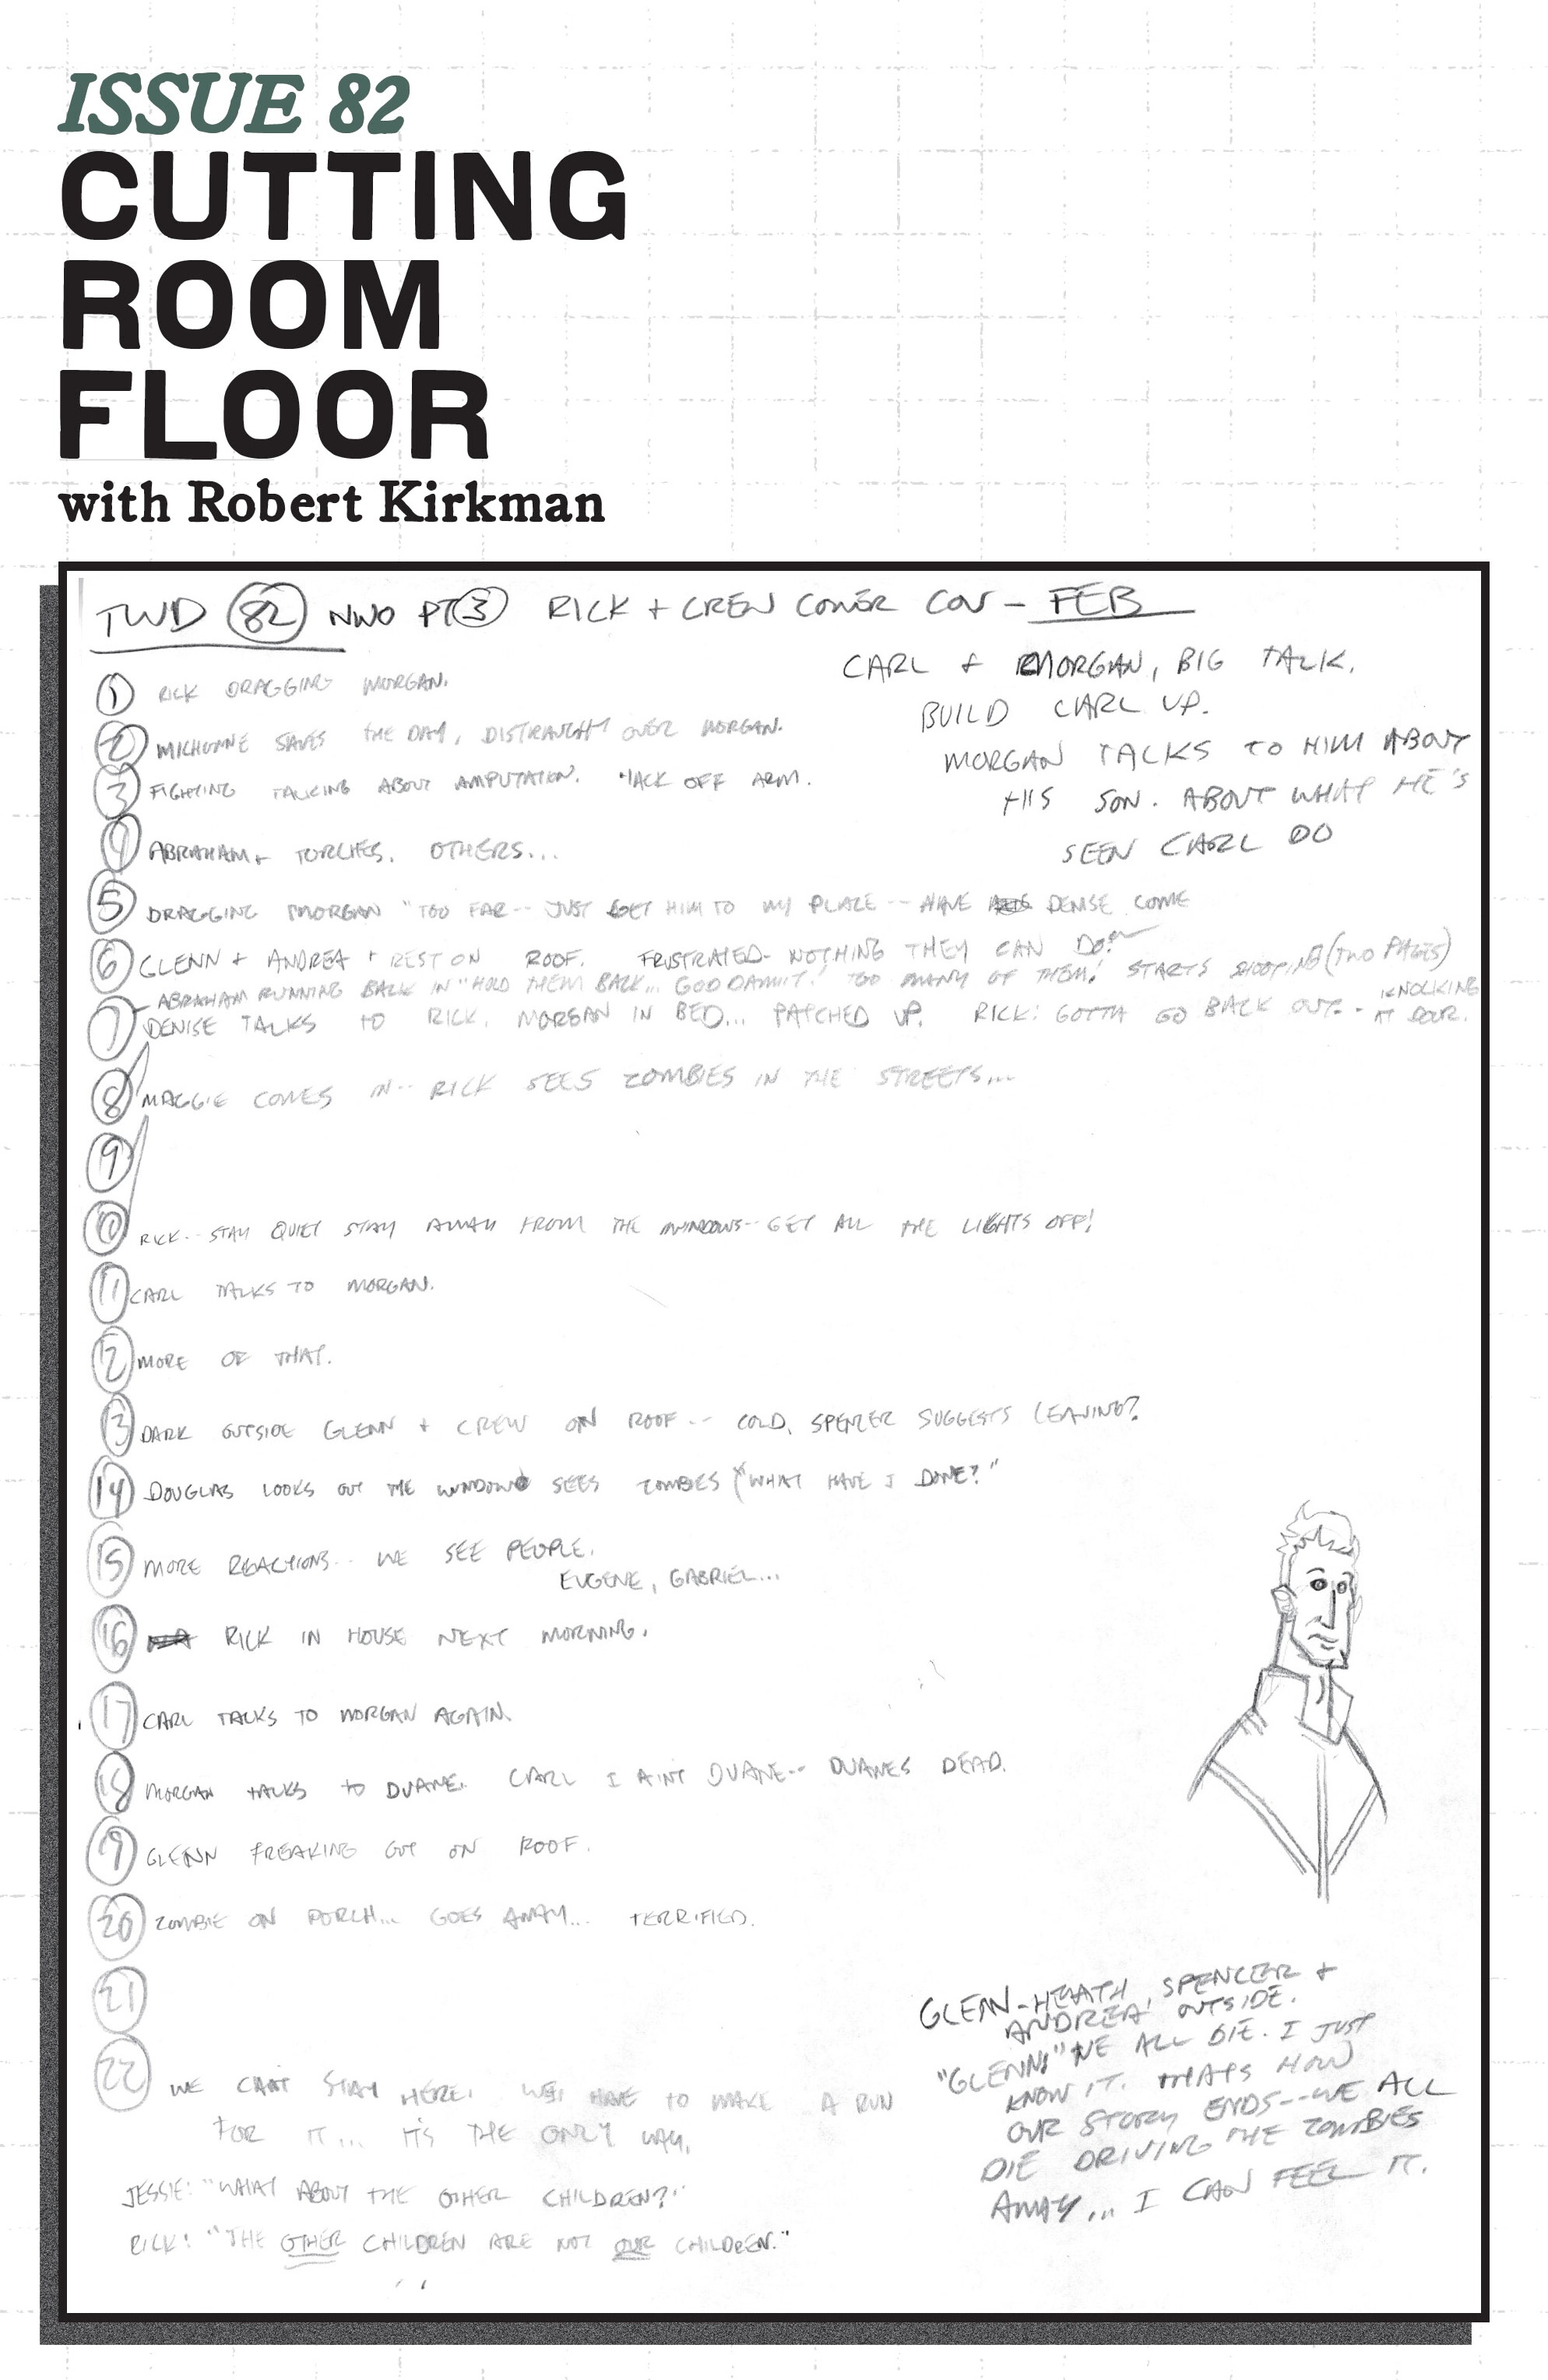 ISSUE 82
CUTTING
ROOM
FLOOR
with Robert Kirkman
TWD 82 NWO PT 3 RICK + CREW COVER COV – FEB
CARL + MORGAN, BIG TALK.
BUILD CARL UP.
MORGAN TALKS TO HIM ABOUT
HIS SON. ABOUT WHAT HE'S
SEEN CARL DO
1 RICK DRAGGING MORGAN.
2 MICHONNE SAVES THE DAY, DISTRAUGHT OVER MORGAN.
3 FIGHTING TALKING ABOUT AMPUTATION. HACK OFF ARM.
4 ABRAHAM + TORCHES. OTHERS...
5 DRAGGING MORGAN "TOO FAR -- JUST GET HIM TO MY PLACE -- HAVE DENISE COME
6 GLENN + ANDREA + REST ON ROOF. FRUSTRATED- NOTHING THEY CAN DO?
ABRAHAM RUNNING BACK IN "HOLD THEM BACK... GOD DAMMIT! TOO MANY OF THEM! STARTS SHOOTING (TWO PAGES)
7 DENISE TALKS TO RICK, MORGAN IN BED... PATCHED UP. RICK: GOTTA GO BACK OUT -- KNOCKING AT DOOR.
8 MAGGIE COMES IN -- RICK SEES ZOMBIES IN THE STREETS...
9
10 RICK -- STAY QUIET STAY AWAY FROM THE WINDOWS -- GET ALL THE LIGHTS OFF!
11 CARL TALKS TO MORGAN.
12 MORE OF THAT.
13 DARK OUTSIDE GLENN + CREW ON ROOF -- COLD, SPENCER SUGGESTS LEAVING?
14 DOUGLAS LOOKS OUT THE WINDOW SEES ZOMBIES ("WHAT HAVE I DONE?"
15 MORE REACTIONS -- WE SEE PEOPLE.
EUGENE, GABRIEL...
16 RICK IN HOUSE NEXT MORNING.
17 CARL TALKS TO MORGAN AGAIN.
18 MORGAN TALKS TO DUANE. CARL I AINT DUANE -- DUANES DEAD.
19 GLENN FREAKING OUT ON ROOF.
20 ZOMBIE ON PORCH... GOES AWAY... TERRIFIED.
21
22 WE CAN'T STAY HERE. WE HAVE TO MAKE A RUN
FOR IT... IT'S THE ONLY WAY.
JESSIE: "WHAT ABOUT THE OTHER CHILDREN?"
RICK: "THE OTHER CHILDREN ARE NOT OUR CHILDREN."
GLENN-HEATH, SPENCER +
ANDREA OUTSIDE.
"GLENN!" WE ALL DIE. I JUST
KNOW IT. THATS HOW
OUR STORY ENDS--WE ALL
DIE DRIVING THE ZOMBIES
AWAY... I CAN FEEL IT.